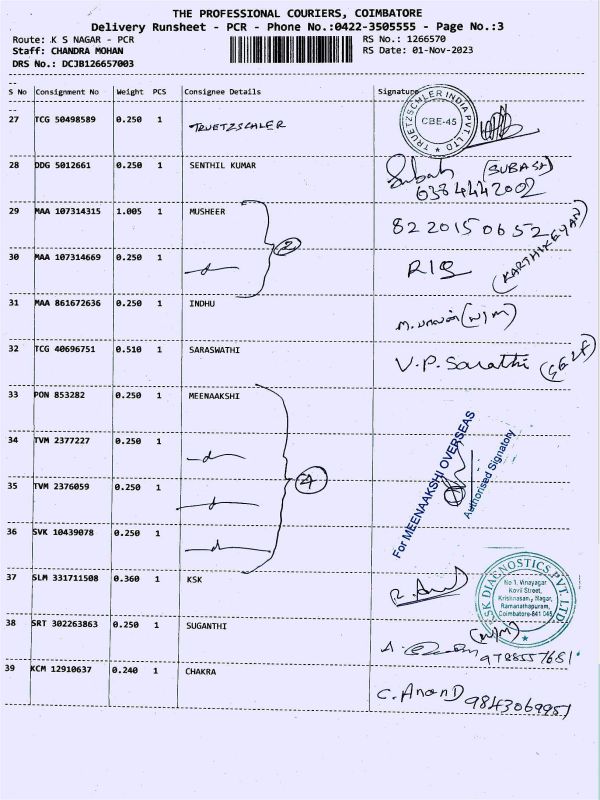 THE PROFESSIONAL COURIERS, COIMBATORE
Delivery Runsheet - PCR - Phone No.:0422-3505555 - Page No.:3
Route: K S NAGAR - PCR RS No.: 1266570
Staff: CHANDRA MOHAN RS Date: 01-Nov-2023
DRS No.: DCJB126657003
S No Consignment No Weight PCS Consignee Details Signature
27 TCG 50498589 0.250 1 TRUETZSCHLER
TRUETZSCHLER INDIA PVT. LTD
CBE-45
28 DDG 5012661 0.250 1 SENTHIL KUMAR
(SUBASH)
6384442002
29 MAA 107314315 1.005 1 MUSHEER 8220150652
2
30 MAA 107314669 0.250 1 (KARTHIKEYAN)
31 MAA 861672636 0.250 1 INDHU (N/M)
32 TCG 40696751 0.510 1 SARASWATHI V.P. Sarathi (SELF)
33 PON 853282 0.250 1 MEENAAKSHI
34 TVM 2377227 0.250 1
For MEENAAKSHI OVERSEAS
Authorised Signatory
35 TVM 2376059 0.250 1
4
36 SVK 10439078 0.250 1
37 SLM 331711508 0.360 1 KSK
SK DIAGNOSTICS PVT. LTD
No 1, Vinayagar
Kovil Street,
Krishnasamy Nagar,
Ramanathapuram,
Coimbatore-641 045
38 SRT 302263863 0.250 1 SUGANTHI
(N/M)
39 KCM 12910637 0.240 1 CHAKRA
C. Anand 9843069951